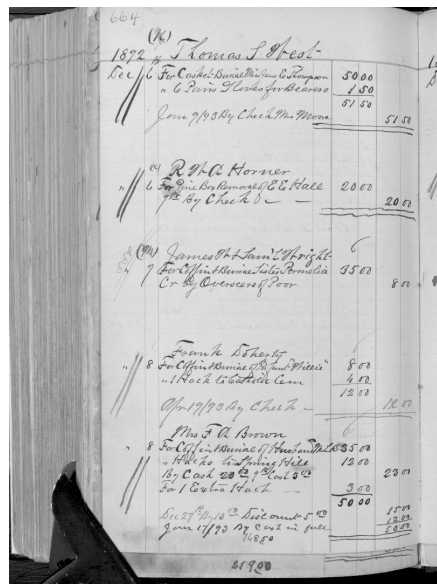 664
(70)
1892 Thomas S West
Dec 6 For Casket Burial Mrs Jane E Thompson 50 00
" 6 Pairs Gloves for Bearers 1 50
51 50
Jany 7/93 By Check Mrs 51 50
R W A Horner
" 6 For Pine Box Removal of E E Hall 20 00
7th By Check 20 00
James W & Saml Wright
" 7 For Coffin & Burial Sister Permelia 35 00
Cr By Overseers of Poor 8 00
Frank Doherty
" 8 For Coffin & Burial of Infant "Willie" 8 00
" 1 Hack to Catholic Cem 4 00
12 00
Apr 17/93 By Check 12 00
Mrs F A Brown
" 8 For Coffin & Burial of Husband 35 00
" Hacks to Spring Hill 12 00
By Cash 20 Cash 3 23 00
For 1 Extra Hack 3 00
50 00
Dec 27th By 10 Discount 5 15 00
Jany 17/93 By Cash in full 12 00
50 00
219 00